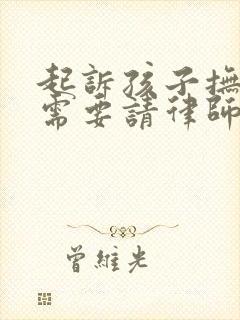 起訴孩子撫
需要請律師
曾維光